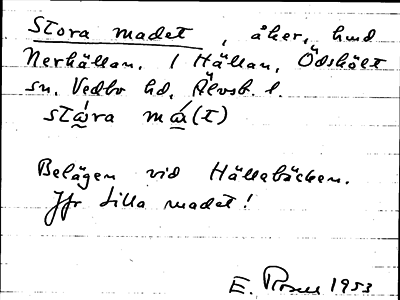 Stora madet, åker, hmd
Nerhällan, 1 Hällan, Ödskölt
sn, Vedbo hd, Älvsb. l.
Belägen vid Hällebäcken.
Jfr Lilla madet!
E. 1953